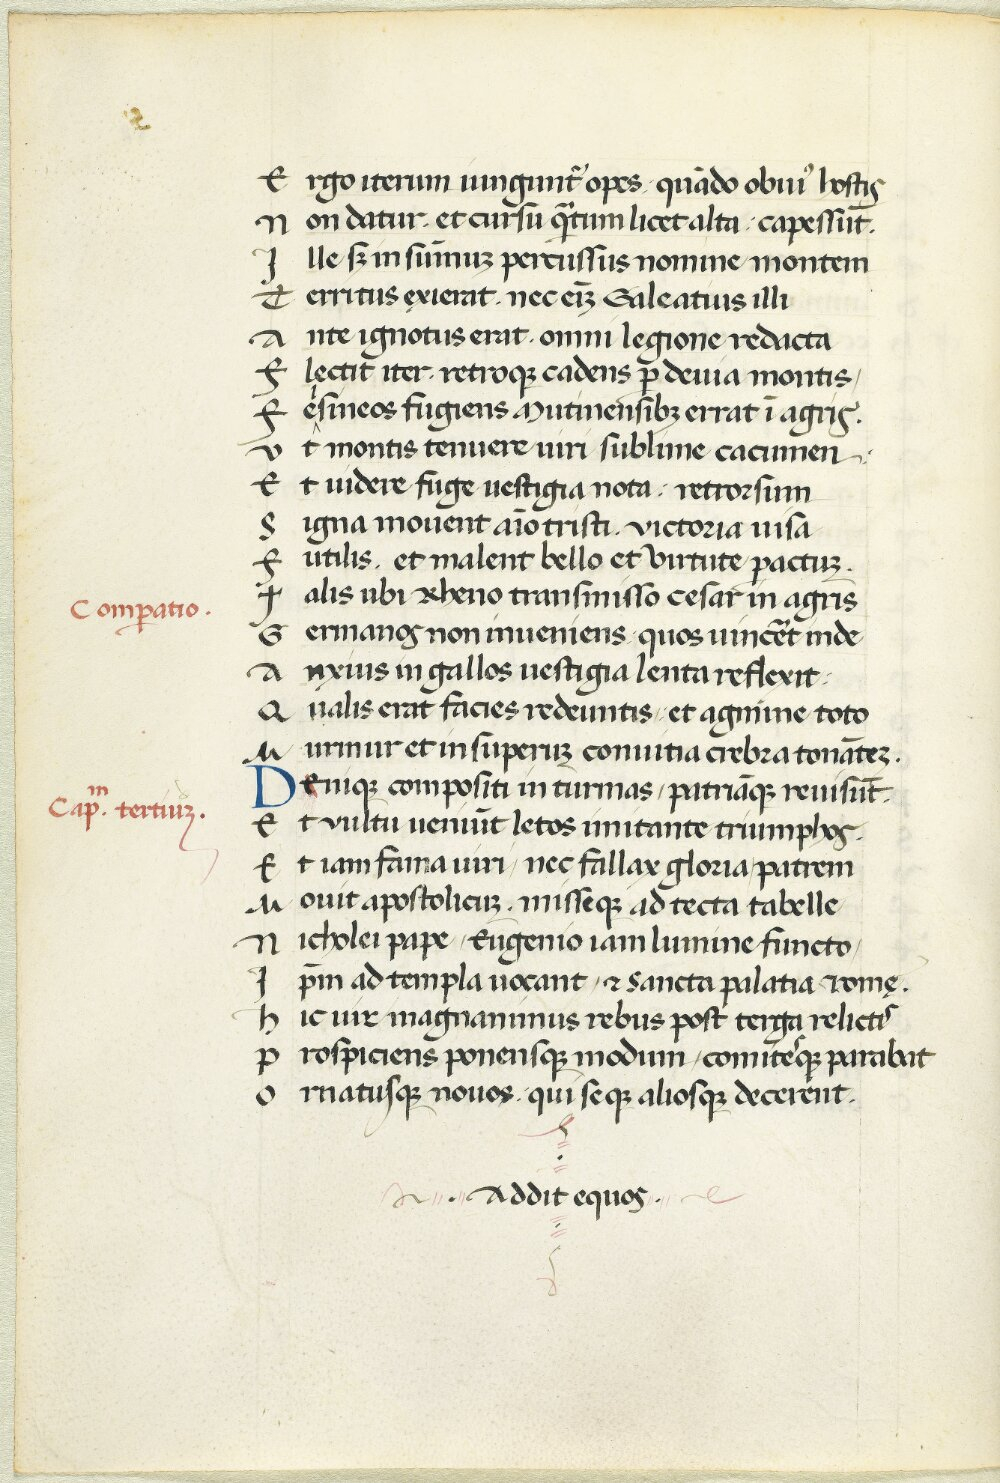 Ergo iterum iungunt᷑ opes · quādo obuiꝰ hostis
Non datur · et cursu qꝫtum licet alta · capessūt.
Ille sꝫ in sum̄uꝫ percussus nomine montem
Territus exierat · nec eīꝫ Galeatius illi
Ante ignotus erat · omni legione redacta
Flectit iter · retroqꝫ cadens ꝑ deuia montis /
Fesineos fugiens Mutinensibꝫ errat ī agris.
Vt montis tenuere uiri sublime cacumen
Et uidere fuge uestigia nota · retrorsum
Signa mouent aīo tristi · victoria uisa
Futilis · et malent bello et virtute pactuꝫ.
Comꝑatio ·
Talis ubi Rheno transmisso cesar in agris
Germanos non inueniens quos uinc̄et inde
Anxius in gallos uestigia lenta reflexit ·
Qualis erat facies redeuntis · et agmine toto
Murmur et insuperuꝫ conuitia crebra tonāteꝫ.
Capᵐ. tertiuꝫ.
Deniqꝫ compositi in turmas / patriāqꝫ reuisūt.
Et vultu ueniūt letos imitante triumphos.
Et iam fama uiri / nec fallax gloria / patrem
Mouit apostolicuꝫ · misseqꝫ ad tecta tabelle
Nicholei pape / Eugenio iam lumine functo /
Ip̄m ad templa uocant / ⁊ sancta palatia romę.
Hic uir magnanimus rebus post terga relictis
Prospiciens ponensqꝫ modum / comitesqꝫ parabat
Ornatusqꝫ nouos · qui seqꝫ aliosqꝫ decerent.
Addit equos.